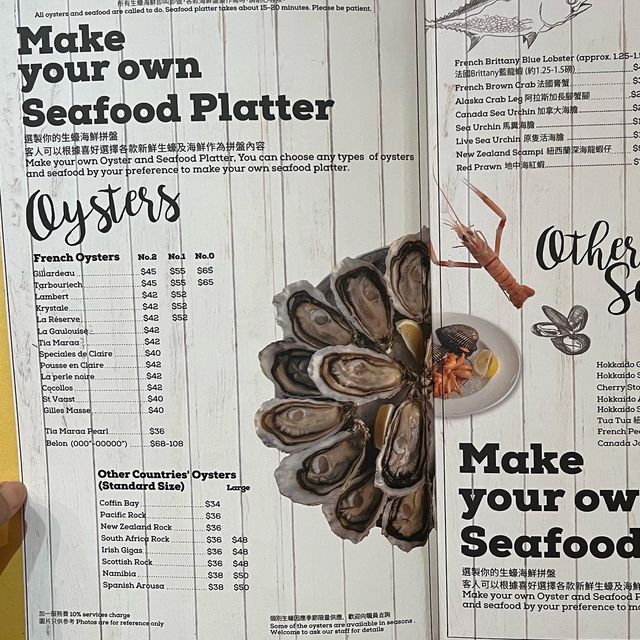 All oysters and seafood are called to do. Seafood platter takes about 15-20 minutes. Please be patient.
Make
your own
Seafood Platter
選製你的生蠔海鮮拼盤
客人可以根據喜好選擇各款新鮮生蠔及海鮮作為拼盤內容
Make your own Oyster and Seafood Platter, You can choose any types of oysters
and seafood by your preference to make your own seafood platter.
Oysters
French Oysters No.2 No.1 No.0
Gillardeau $45 $55 $65
Tarbouriech $45 $55 $65
Lambert $42 $52
Krystale $42 $52
La Réserve $42 $52
La Gauloise $42
Tia Maraa $42
Speciales de Claire $40
Pousse en Claire $42
La perle noire $42
Cocollos $42
St Vaast $40
Gilles Masse $40
Tia Maraa Pearl $36
Belon (000"-00000") $68-108
Other Countries' Oysters
(Standard Size) Large
Coffin Bay $34
Pacific Rock $36
New Zealand Rock $36
South Africa Rock $36 $48
Irish Gigas $36 $48
Scottish Rock $36 $48
Namibia $38 $50
Spanish Arousa $38 $50
加一服務費 10% services charge
圖片只供參考 Photos are for reference only
個別生蠔因應季節限量供應，歡迎向職員查詢
Some of the oysters are available in seasons .
Welcome to ask our staff for details
French Brittany Blue Lobster (approx. 1.25-1.
法國Brittany藍龍蝦 (約1.25-1.5磅)
French Brown Crab 法國膏蟹
Alaska Crab Leg 阿拉斯加長腳蟹腳
Canada Sea Urchin 加拿大海膽
Sea Urchin 馬糞海膽
Live Sea Urchin 原隻活海膽
New Zealand Scampi 紐西蘭深海龍蝦仔
Red Prawn 地中海紅蝦
Other
Se
Hokkaido
Hokkaido
Cherry Sto
Hokkaido
Hokkaido
Tua Tua
French Pe
Canada
Make
your ow
Seafood
選製你的生蠔海鮮拼盤
客人可以根據喜好選擇各款新鮮生蠔及海
Make your own Oyster and Seafood P
and seafood by your preference to m